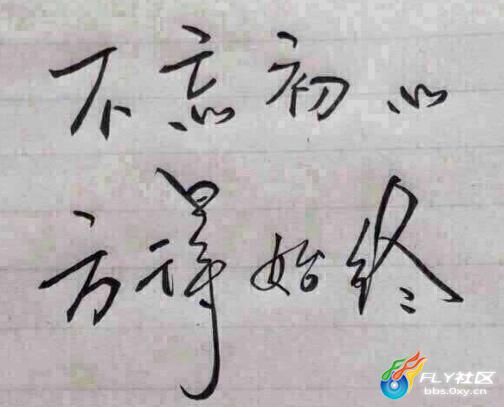 不忘初心
方得始终
FLY社区
bbs.0xy.cn